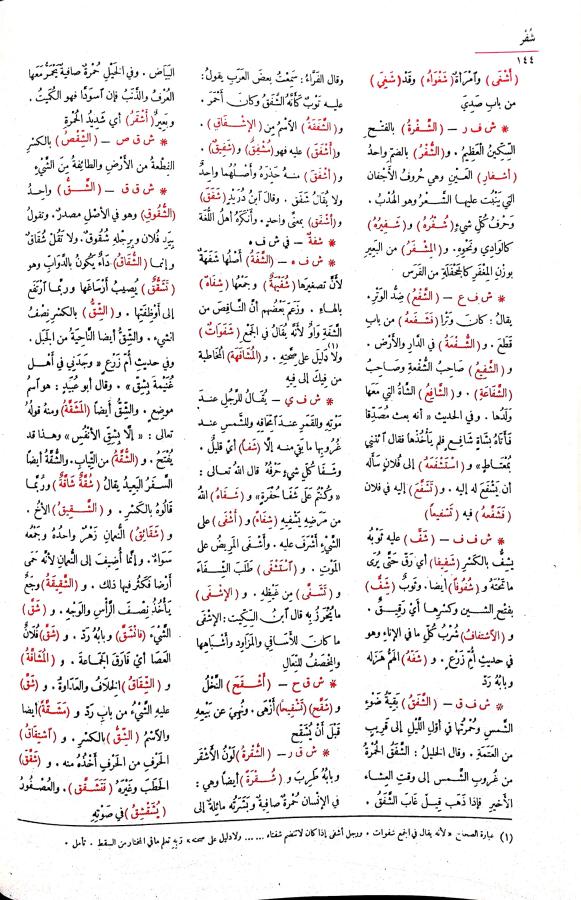 شفر
١٤٤
(أَشْفَى) وامْرَأَةٌ (شَفْوَاءُ) وقد (شَفِيَ)
من باب صَدِيَ
* ش ف ر – (الشَّفْرَةُ) بالفَتْحِ
السِّكِّينُ العَظِيمُ . و (الشُّفْرُ) بالضمّ واحدُ
(أَشفارِ) العَيْنِ وهي حُروفُ الأَجْفان
التي يَنْبُت عليها الشَّعْرُ وهو الهُدْبُ .
وحَرْفُ كُلِّ شيءٍ (شُفْرُهُ) و (شَفِيرُهُ)
كالوادِي ونَحْوِه . و (المِشْفَرُ) من البَعِيرِ
بوزن المِغْفَر كالجَحْفَلَةِ من الفَرَس
* ش ف ع – (الشَّفْعُ) ضِدُّ الوَتْرِ .
يقال : كانَ وَتْرًا (فَشَفَعَهُ) من باب
قَطَعَ . و (الشُّفْعَةُ) في الدَّارِ والأَرْض .
و (الشَّفِيعُ) صاحِبُ الشُّفْعَةِ وصاحِبُ
(الشَّفاعَةِ) . و (الشافِعُ) الشاةُ التي مَعَها
وَلَدُها . وفي الحديث « أنه بعث مُصَدِّقا
فأتاهُ بشاةٍ شافِعٍ فلم يأخُذْها فقال ٱئْتِنِي
بمُعْتاطٍ » و (اسْتَشْفَعَهُ) إلى فُلانٍ سأَله
أن يَشْفَعَ له إليه . و (تَشَفَّعَ) إليه في فلان
(فَشَفَّعَهُ) فيه (تَشْفِيعاً)
* ش ف ف – (شَفَّ) عليه ثَوْبُهُ
يَشِفُّ بالكَسْرِ (شَفِيفا) أي رَقَّ حتَّى يُرَى
ما تَحْتَهُ و (شُفُوفاً) أيضا . وثَوْبٌ (شَفٌّ)
بفتح الشين وكسْرها أي رَقيقٌ .
و (الاشتفافُ) شُرْبُ كُلِّ ما في الإناءِ وهو
في حديثِ أُمّ زَرْعٍ . و (شَفَّهُ) الهَمُّ هَزَلَه
وبابُه رَدَّ
* ش ف ق – (الشَّفَقُ) بَقِيَّةُ ضَوْءِ
الشَّمس وحُمْرَتُها في أوّل اللَّيْلِ إلى قَرِيبٍ
من العَتَمَة . وقال الخليلُ : الشَّفَقُ الحُمْرَةُ
من غُروب الشَّمْس إلى وقت العشاء
الأخير فإذا ذَهَب قِيلَ غَابَ الشَّفَقُ .
وقال الفَرَّاءُ : سَمِعْتُ بعضَ العَرَب يقولُ :
عليه ثَوْبٌ كأنَّه الشَّفَقُ وكان أَحْمَرَ .
و (الشَّفَقَةُ) الاسْمُ من (الإشْفاقِ) .
و (أَشْفَقَ) عليه فهو (مُشْفِقٌ) و (شَفِيقٌ) .
و (أَشْفَقَ) منه حَذِرَهُ وأصْلُهُما واحدٌ
ولا يُقالُ شَفَقَ . وقالَ ابنُ دُرَيْدٍ (شَفَقَ)
و (أَشْفَقَ) بمعنًى واحدٍ . وأَنْكَرَهُ أهلُ اللُّغَة
* شفةٌ – في ش ف ه
* ش ف ه – (الشَّفَةُ) أَصْلُها شَفَهَةٌ
لأنّ تصغيرها (شُفَيْهَةٌ) وجَمْعُها (شِفاهٌ)
بالهاءِ . وزَعَمَ بَعضُهم أنَّ الناقِصَ من
الشَّفَةِ وَاوٌ لأنَّهُ يُقالُ في الجَمْع (شَفَوَاتٌ)
ولا دَلِيلَ على صِحَّتِه (١) . و (المُشَافَهَةُ) المُخاطبة
من فِيكَ إلى فِيهِ
* ش ف ي – يُقالُ للرَّجُلِ عندَ
مَوْتِهِ وللقَمَرِ عندَ ٱمِّحَاقِه وللشَّمسِ عند
غُرُوبِها ما بَقِيَ منه إلا (شَفاً) أيْ قَلِيلٌ .
وشَفَا كُلِّ شيءٍ حَرْفُهُ قال الله تعالى :
« وكُنْتُم على شَفَا حُفْرَةٍ » و (شَفاهُ) اللهُ
من مَرَضِهِ يَشْفِيهِ (شِفاءً) و (أَشْفَى) على
الشَّيْءِ أَشْرَف عليه . وأَشْفَى المَرِيضُ على
المَوْتِ . و (اسْتَشْفَى) طَلَبَ الشِّفَاءَ
و (تَشَفَّى) مِن غَيْظِهِ . و (الإشْفَى)
ما يُخْرَزُ به قال ابنُ السِّكِّيت : الإشْفَى
ما كان للأَسَاقِي والمَزَاوِدِ وأَشْباهِها
والمِخْصَفُ للنِّعَالِ
* ش ق ح – (أَشْقَحَ) النَّخْلُ
و (شَقَّحَ) (تَشْقِيحاً) أَزْهَى . ونُهِيَ عن بَيْعِهِ
قَبْلَ أنْ يُشَقَّحَ
* ش ق ر – (الشُّقْرَةُ) لَوْنُ الأَشْقَر
وبابُه طَرِبَ و (شُقْرَةً) أيضاً وهي :
في الإنسانِ حُمْرَةٌ صافيةٌ وبَشَرَتُه مائلةٌ إلى
البَياضِ . وفي الخَيْلِ حُمْرةٌ صافيةٌ يَحْمَرُّ مَعَها
العُرْفُ والذَّنَبُ فإن ٱسْوَدَّا فهو الكُمَيْتُ .
وبَعِيرٌ (أَشْقَرُ) أي شَدِيدُ الحُمْرةِ
* ش ق ص – (الشِّقْصُ) بالكَسْرِ
القِطْعَة من الأَرْضِ والطَّائِفَةُ مِنَ الشَّيْءِ
* ش ق ق – (الشَّقُّ) واحِدُ
(الشُّقُوقِ) وهو في الأَصْلِ مصدرٌ . وتقول
بِيَدِ فُلان وبرجْله شُقُوقٌ . ولا تَقُلْ شُقَاقٌ
وإنما (الشُّقاقُ) دَاءٌ يكونُ بالدَّوَابّ وهو
(تَشَقُّقٌ) يُصِيبُ أَرْسَاغَها ورُبَّما ٱرْتَفَعَ
إلى أَوْظِفَتِها . و (الشِّقُّ) بالكَسْرِ نِصْفُ
الشيء . والشِّقُّ أيضاً الناحِيَةُ من الجَبَلِ .
وفي حديث أُمّ زَرْعٍ « وجَدَنِي في أهْلِ
غُنَيْمَةٍ بِشِقٍّ » . وقال أبو عُبَيْدٍ : هو ٱسمُ
موضِعٍ . والشِّقُّ أيضاً (المَشَقَّةُ) ومنه قولُهُ
تعالى : « إلَّا بِشِقِّ الأنْفُسِ » وهذا قد
يُفْتَحُ . و (الشُّقَّةُ) من الثِّيابِ . والشُّقَّةُ أيضاً
السَّفَرُ البَعِيدُ يقالُ (شُقَّةٌ شاقَّةٌ) ورُبَّما
قالُوه بالكَسْرِ . و (الشَّقِيقُ) الأخُ .
و (شَقائِقُ) النُّعمانِ زَهْرٌ واحدُهُ وجَمْعُه
سَوَاءٌ . وإنَّما أُضِيفَ إلى النُّعمانِ لأنَّه حَمَى
أرضا فكَثُرَ فيها ذلك . و (الشَّقِيقَةُ) وَجَعٌ
يأْخُذُ نِصْفَ الرَّأْسِ والوَجْهِ . و (شَقَّ)
الشَّيْءَ (فانْشَقَّ) وبابُه رَدَّ . و (شَقَّ) فُلانٌ
العَصَا أيْ فَارَقَ الجماعَةَ . و (المُشَاقَّةُ)
و (الشِّقاقُ) الخِلافُ والعَدَاوَةُ . و (شَقَّ)
عليهِ الشَّيْءُ من بابِ رَدّ و (مَشَقَّةً) أيضا
والاسْمُ (الشِّقُّ) بالكَسْرِ . و (اشْتِقاقُ)
الحَرْفِ من الحَرْفِ أَخْذُهُ منه . و (شَقَّقَ)
الحَطَبَ وغَيْرَهُ (فَتَشَقَّقَ) . والعُصْفُورُ
(يُشَقْشِقُ) في صَوْتِهِ
(١) عبارة الصحاح « لأنه يقال في الجمع شفوات . ورجل أشفى إذا كان لا تنضم شفتاه ...... ولا دليل على صحته » وبه تعلم ما في المختار من السقط . تأمل .